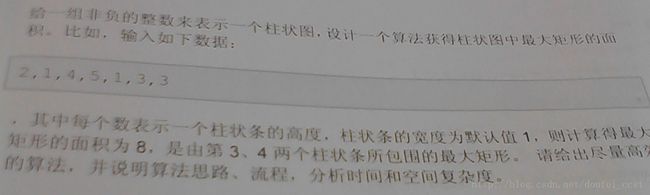 给一组非负的整数来表示一个柱状图,设计一个算法获得柱状图中最大矩形的面
积。比如，输入如下数据：
2,1,4,5,1,3,3
，其中每个数表示一个柱状条的高度，柱状条的宽度为默认值 1，则计算得最大
矩形的面积为 8，是由第 3、4 两个柱状条所包围的最大矩形。 请给出尽量高效
的算法，并说明算法思路、流程，分析时间和空间复杂度。